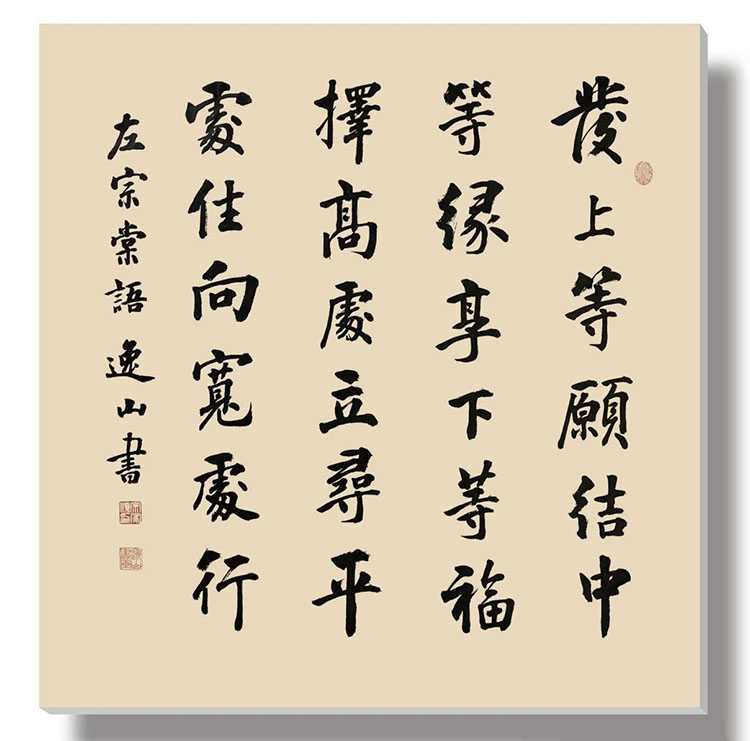 發上等願結中
等緣享下等福
擇高處立尋平
處住向寬處行
左宗棠語 逸山書